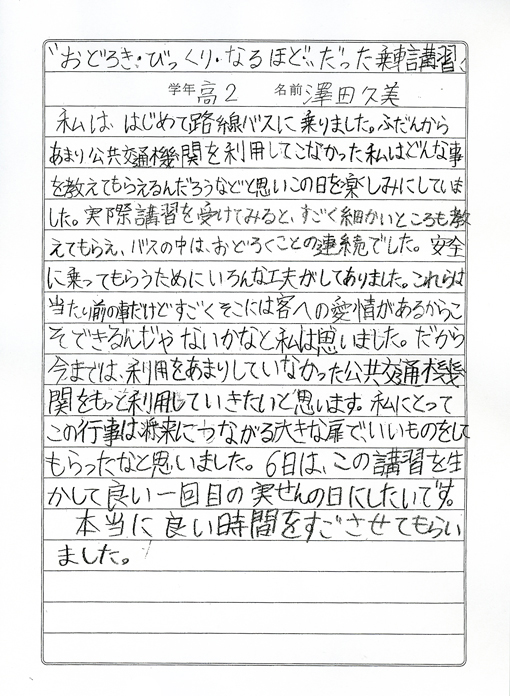 “おどろき・びっくり・なるほど”だった乗車講習
学年 高2 名前 澤田久美
私は、はじめて路線バスに乗りました。ふだんから
あまり公共交通機関を利用してこなかった私はどんな事
を教えてもらえるんだろうなどと思いこの日を楽しみにしていま
した。実際講習を受けてみると、すごく細かいところも教
えてもらえ、バスの中は、おどろくことの連続でした。安全
に乗ってもらうためにいろんな工夫がしてありました。これらは
当たり前の事だけどすごくそこには客への愛情があるからこ
そできるんじゃないかなと私は思いました。だから
今までは、利用をあまりしていなかった公共交通機
関をもっと利用していきたいと思います。私にとって
この行事は将来につながる大きな扉で、いいものをして
もらったなと思いました。6日は、この講習を生
かして良い一回目の実せんの日にしたいです。
本当に良い時間をすごさせてもらい
ました。